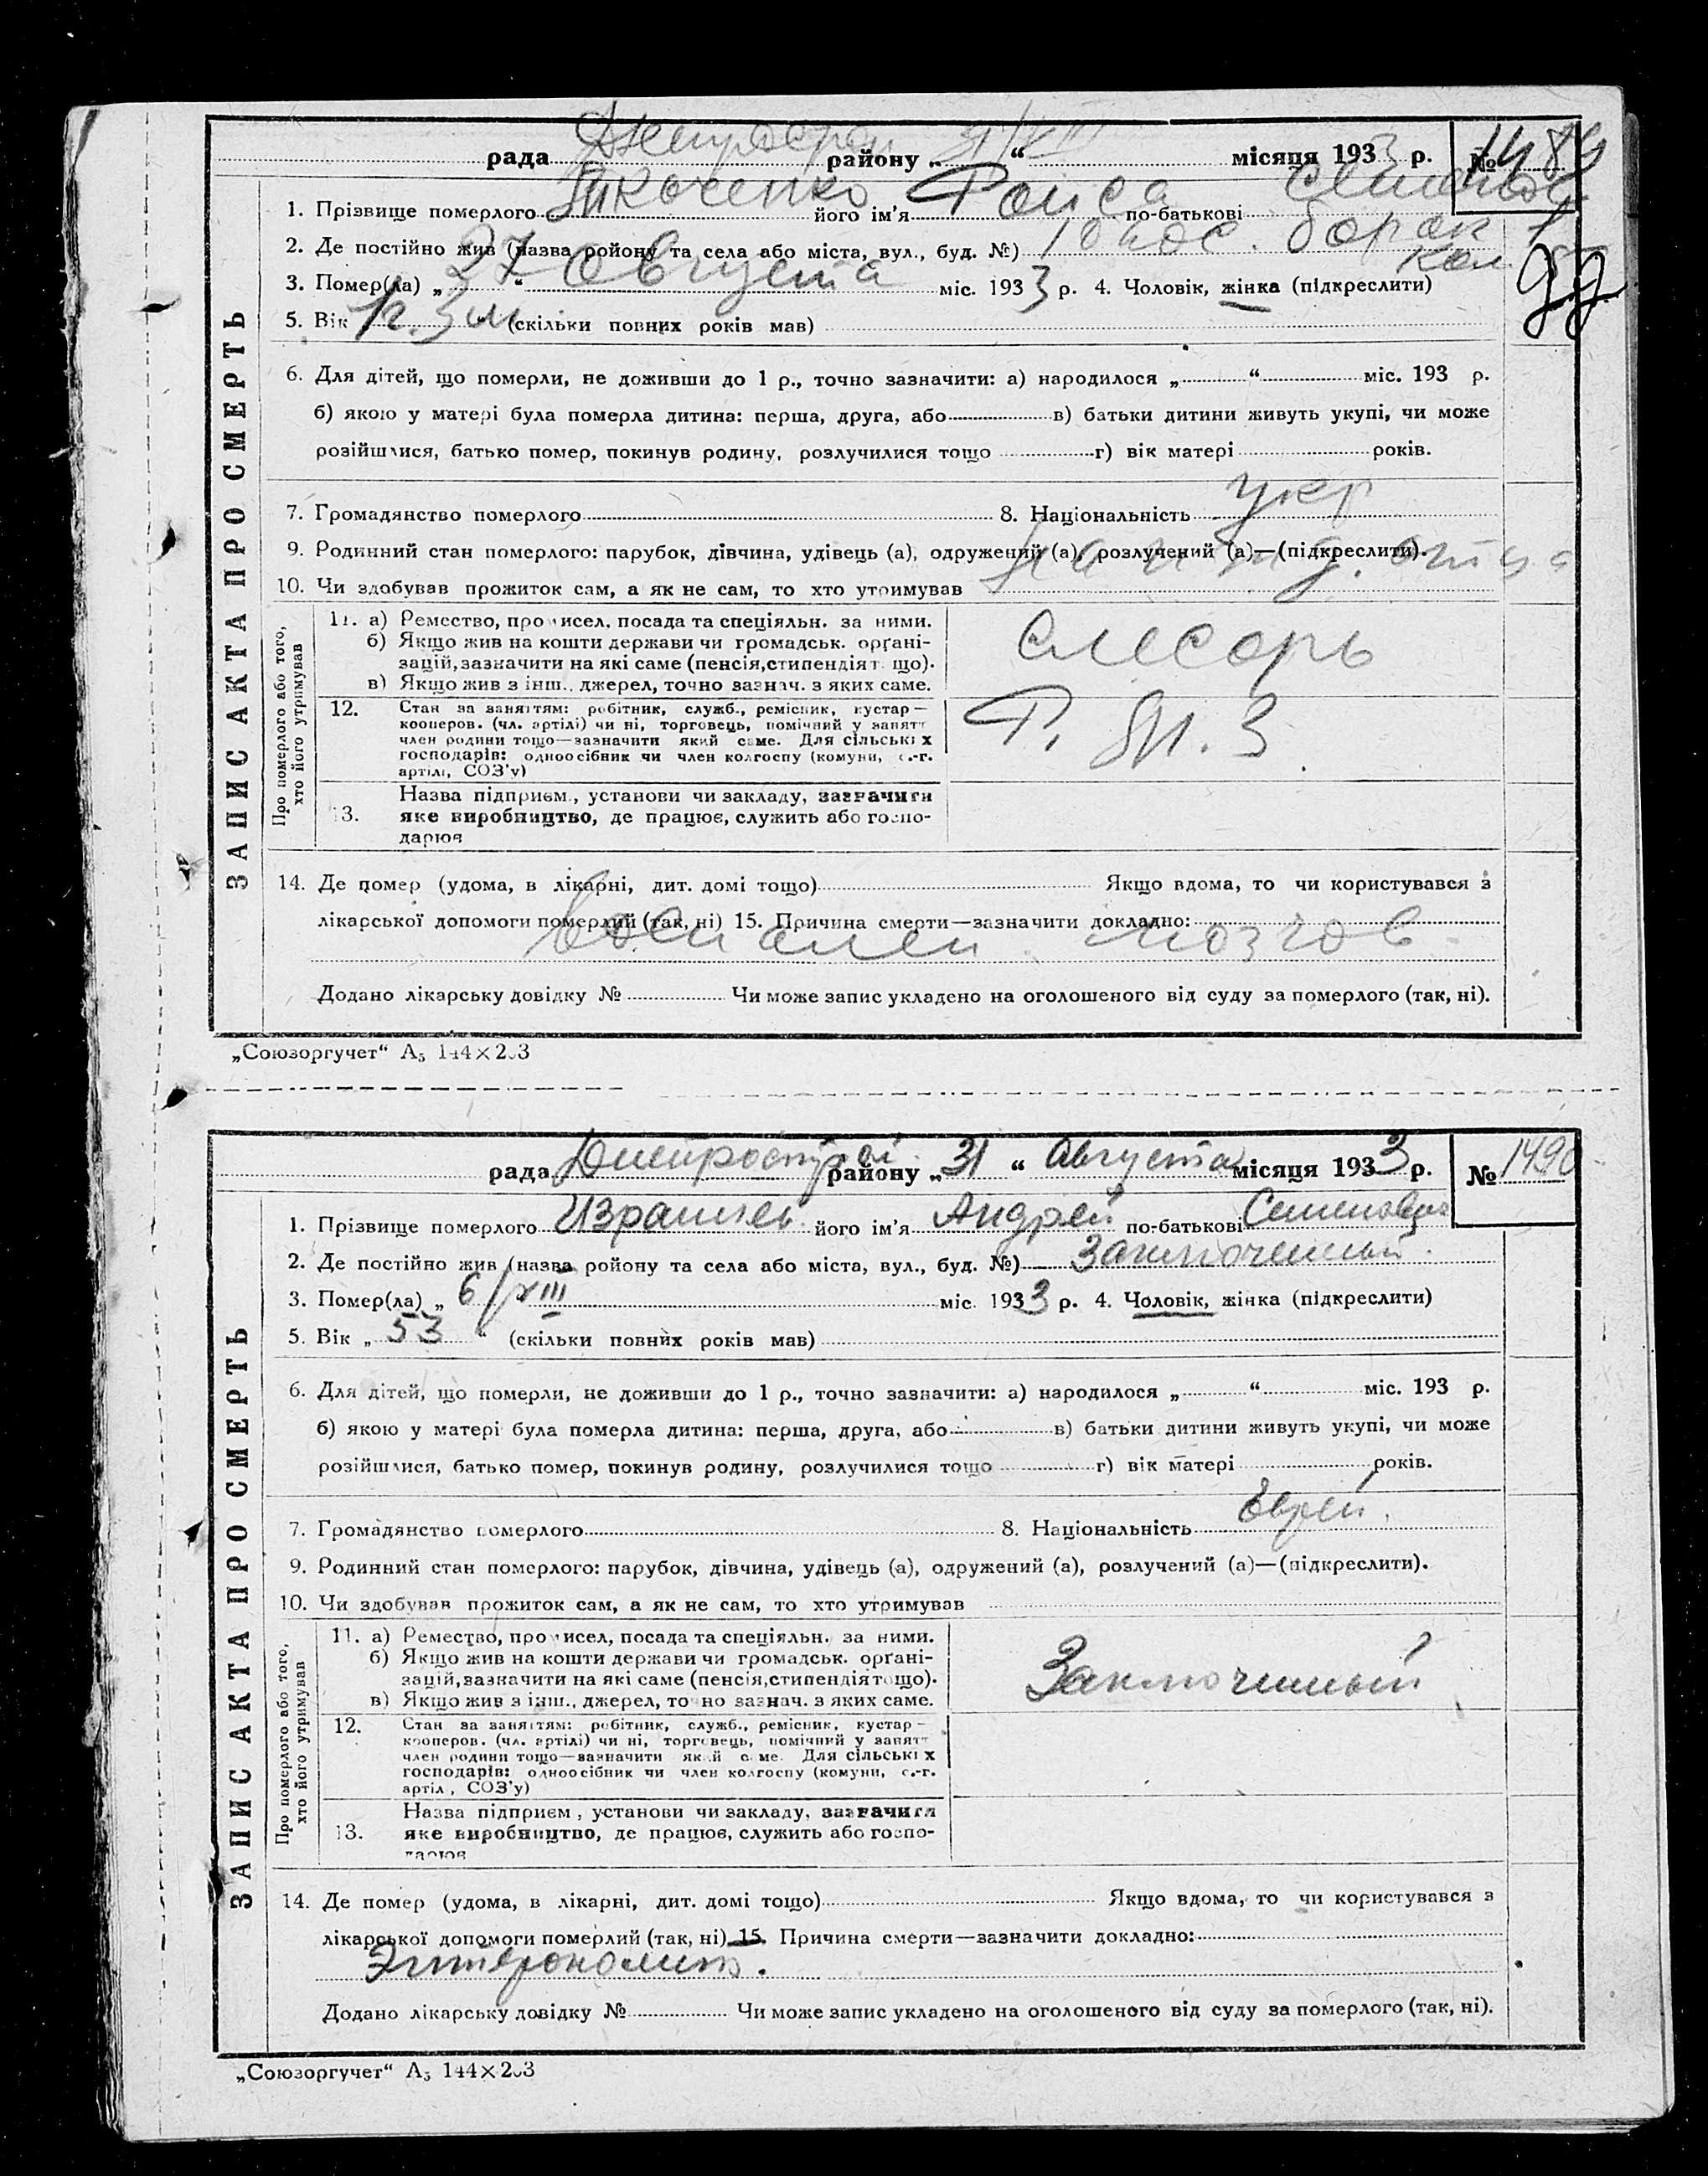 ЗАПИС АКТА ПРО СМЕРТЬ
рада Днепрострой району „31/VIII“ місяця 1933 р. № 1489
1. Прізвище померлого його ім'я Раиса по-батькові
2. Де постійно жив (назва ройону та села або міста, вул., буд. №) 10 пос. барак 1
3. Помер(ла) „27“ августа міс. 1933 р. 4. Чоловік, жінка (підкреслити)
5. Вік „1 г. 3 м“ (скільки повних років мав)
6. Для дітей, що померли, не доживши до 1 р., точно зазначити: а) народилося „ “ міс. 193 р.
б) якою у матері була померла дитина: перша, друга, або в) батьки дитини живуть укупі, чи може
розійшлися, батько помер, покинув родину, розлучилися тощо г) вік матері років.
7. Громадянство померлого 8. Національність укр
9. Родинний стан померлого: парубок, дівчина, удівець (а), одружений (а), розлучений (а)—(підкреслити).
10. Чи здобував прожиток сам, а як не сам, то хто утримував на ижд. отца
Про померлого або того, хто його утримував
11. а) Ремество, промисел, посада та спеціяльн. за ними.
б) Якщо жив на кошти держави чи громадськ. орґані-
зацій, зазначити на які саме (пенсія, стипендіят що).
в) Якщо жив з інш., джерел, точно зазнач. з яких саме.
слесарь
12. Стан за заняттям: робітник, служб., ремісник, кустар—
кооперов. (чл. артілі) чи ні, торговець, помічний у занятт
член родини тощо—зазначити який саме. Для сільських
господарів: одноосібник чи член колгоспу (комуни, с.-г.
артілі, СОЗ'у)
13. Назва підприєм., установи чи закладу, зазначити
яке виробництво, де працює, служить або госпо-
дарює
14. Де помер (удома, в лікарні, дит. домі тощо) Якщо вдома, то чи користувався з
лікарської допомоги померлий (так, ні) 15. Причина смерти—зазначити докладно:
воспален. мозгов
Додано лікарську довідку № Чи може запис укладено на оголошеного від суду за померлого (так, ні).
„Союзоргучет“ А₅ 144×203
ЗАПИС АКТА ПРО СМЕРТЬ
рада Днепрострой району „31“ Августа місяця 1933 р. № 1490
1. Прізвище померлого його ім'я Андрей по-батькові Семенович
2. Де постійно жив (назва ройону та села або міста, вул., буд. №) Заключенный
3. Помер(ла) „6/VIII міс. 1933 р. 4. Чоловік, жінка (підкреслити)
5. Вік „53“ (скільки повних років мав)
6. Для дітей, що померли, не доживши до 1 р., точно зазначити: а) народилося „ “ міс. 193 р.
б) якою у матері була померла дитина: перша, друга, або в) батьки дитини живуть укупі, чи може
розійшлися, батько помер, покинув родину, розлучилися тощо г) вік матері років.
7. Громадянство померлого 8. Національність Еврей.
9. Родинний стан померлого: парубок, дівчина, удівець (а), одружений (а), розлучений (а)—(підкреслити).
10. Чи здобував прожиток сам, а як не сам, то хто утримував
Про померлого або того, хто його утримував
11. а) Ремество, промисел, посада та спеціяльн. за ними.
б) Якщо жив на кошти держави чи громадськ. орґані-
зацій, зазначити на які саме (пенсія, стипендія тощо).
в) Якщо жив з інш., джерел, точно зазнач. з яких саме.
Заключенный
12. Стан за заняттям: робітник, служб., ремісник, кустар—
кооперов. (чл. артілі) чи ні, торговець, помічний у занятт
член родини тощо—зазначити який саме. Для сільських
господарів: одноосібник чи член колгоспу (комуни, с.-г.
артіл, СОЗ'у)
13. Назва підприєм, установи чи закладу, зазначити
яке виробництво, де працює, служить або госпо-
дарює
14. Де помер (удома, в лікарні, дит. домі тощо) Якщо вдома, то чи користувався з
лікарської допомоги померлий (так, ні) 15. Причина смерти—зазначити докладно:
Энтероколит.
Додано лікарську довідку № Чи може запис укладено на оголошеного від суду за померлого (так, ні).
„Союзоргучет“ А₅ 144×203